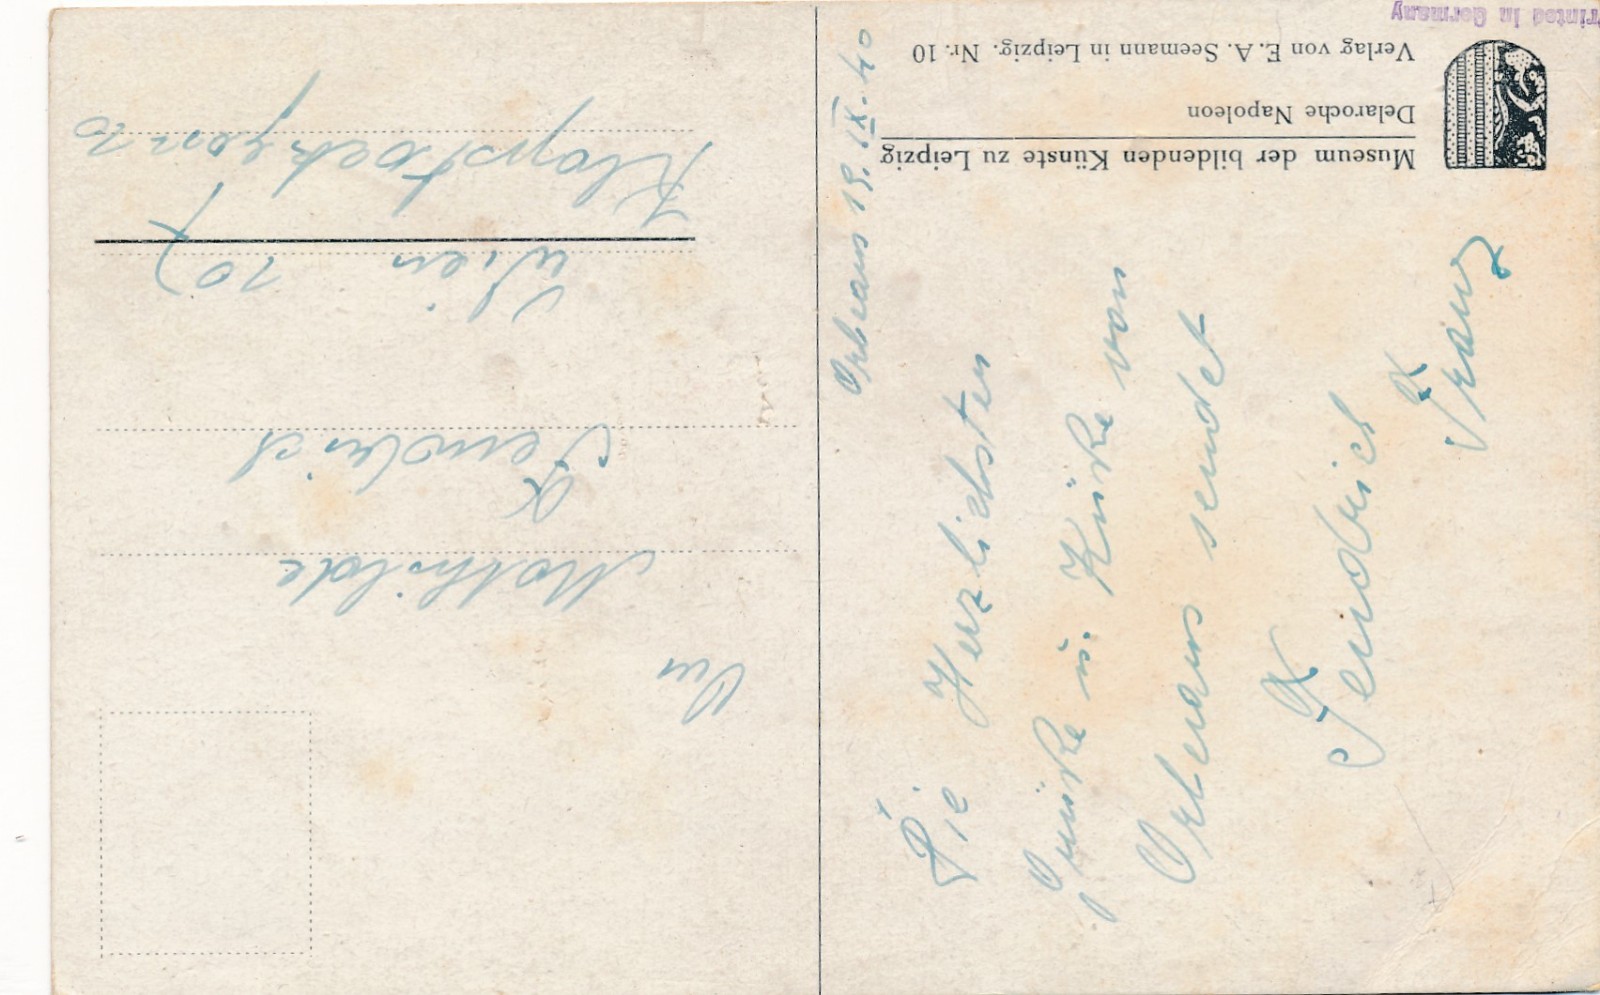 Printed in Germany
Museum der bildenden Künste zu Leipzig
Delaroche Napoleon
Verlag von E. A. Seemann in Leipzig. Nr. 10
Orleans 19. IX. 40
Die Herzlichsten
Grüße u. Küße von
Orleans sendet
Jendrich
Franz
An
Mathilde
Jendrich
Wien 107
Klopstockgasse 20